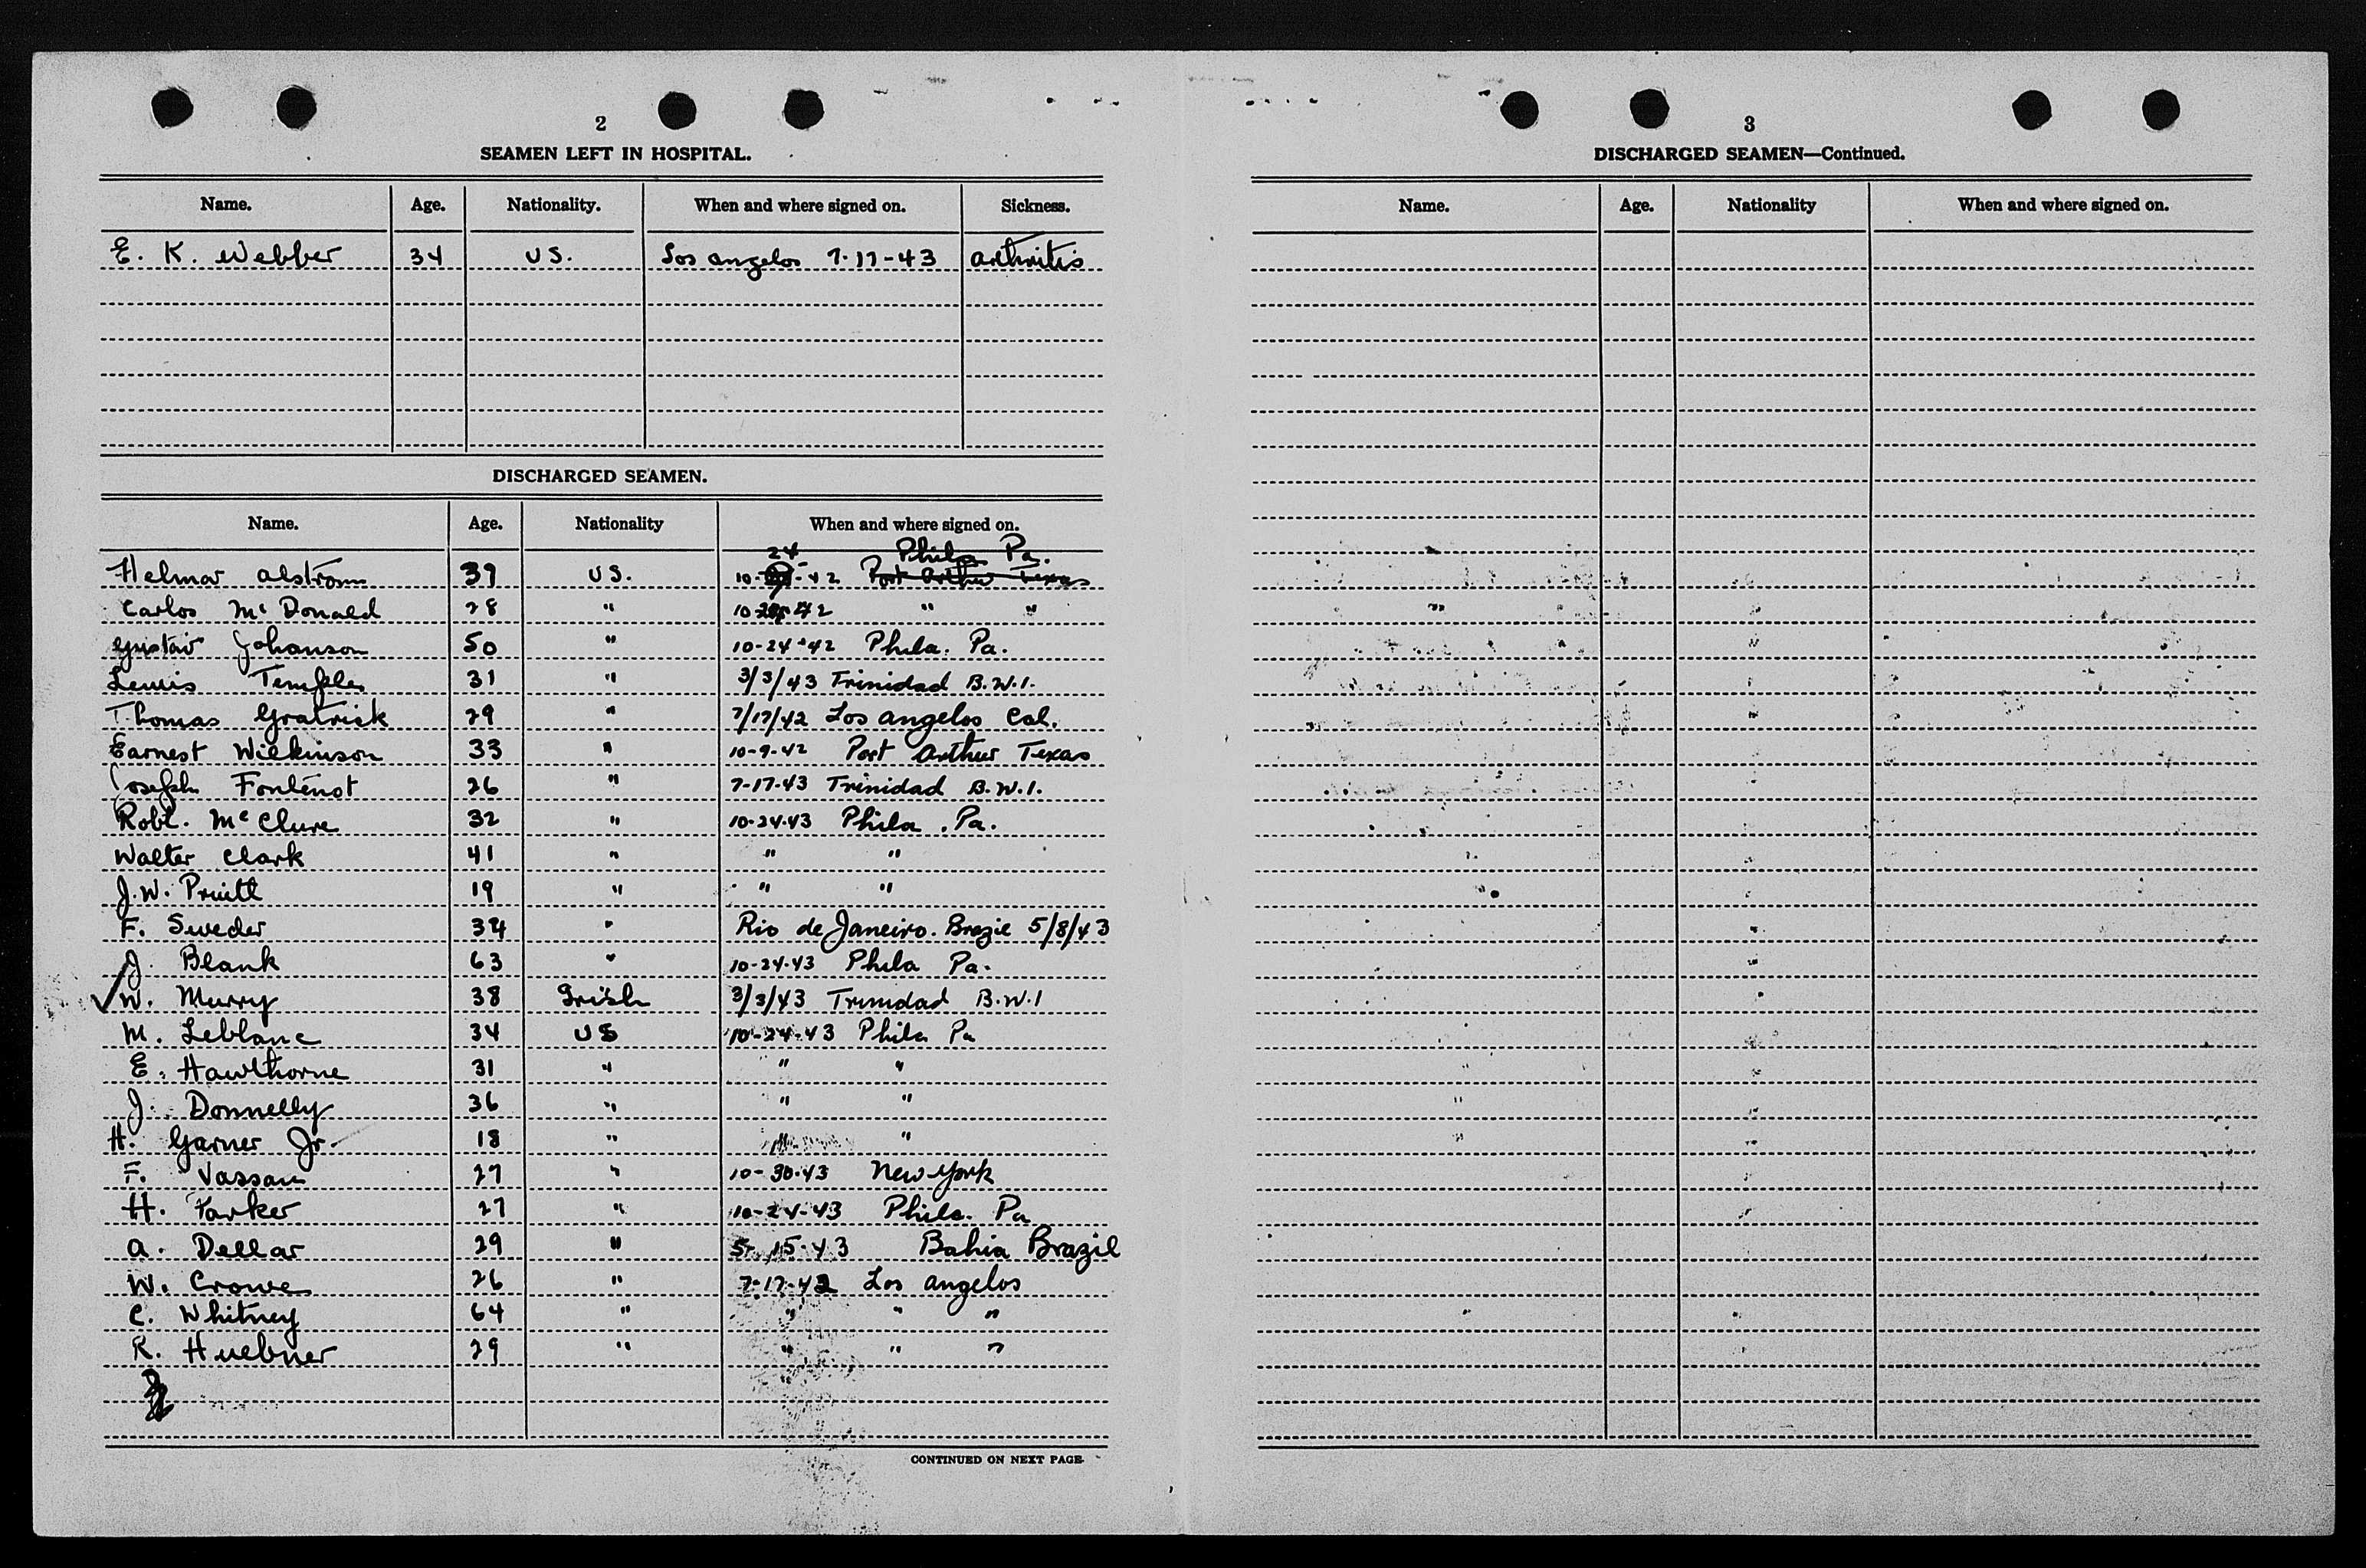 2
SEAMEN LEFT IN HOSPITAL.
Name. Age. Nationality. When and where signed on. Sickness.
E. K. Webber 34 US. Los angelos 7-17-43 arthritis
DISCHARGED SEAMEN.
Name. Age. Nationality When and where signed on.
24 Phila Pa.
Helmar alstrom 39 US. 10- -42 Port Arthur Texas
Carlos Mc Donald 28 " 10-24-42 " "
Gustav Johanson 50 " 10-24-42 Phila. Pa.
Lewis Temples 31 " 3/3/43 Trinidad B.W.I.
Thomas Gratrick 29 " 7/17/42 Los angelos Cal.
Earnest Wilkinson 33 " 10-9-42 Port Arthur Texas
Joseph Fontenot 26 " 7-17-43 Trinidad B.W.I.
Robt. Mc Clure 32 " 10-24-43 Phila. Pa.
Walter Clark 41 " " "
J.W. Pruitt 19 " " "
F. Sweder 34 " Rio de Janeiro. Brazil 5/8/43
J Blank 63 " 10-24-43 Phila Pa.
✓ W. Murry 38 Irish 3/3/43 Trinidad B.W.I
M. Leblanc 34 US 10-24-43 Phila Pa
E. Hawthorne 31 " " "
J. Donnelly 36 " " "
H. Garner Jr. 18 " " "
F. Vassau 27 " 10-30-43 New York
H. Parker 27 " 10-24-43 Phila. Pa
A. Dellar 29 " 5-15-43 Bahia Brazil
W. Crowe 26 " 7-17-42 Los angelos
C. Whitney 64 " " " "
R. Huebner 29 " " " "
CONTINUED ON NEXT PAGE
3
DISCHARGED SEAMEN—Continued.
Name. Age. Nationality When and where signed on.